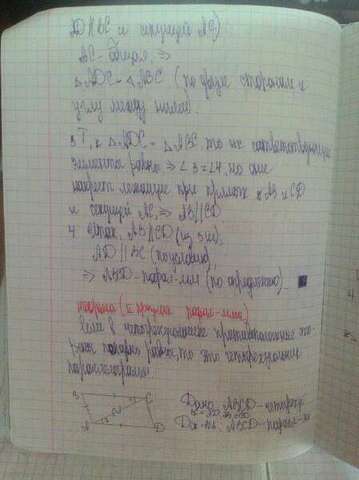 AD||BC и секущей AC)
AC - общая, ⇒
△ADC = △ABC (по двум сторонам и
углу между ними).
3 Т.к △ADC = △ABC то их соответствующие
элементы равны ⇒ ∠3=∠4, но они
накрест лежащие при прямых AB и CD
и секущей AC, ⇒ AB||CD
4 Итак, AB||CD (из 3 п),
AD || BC (по условию),
⇒ ABCD - парал-мм (по определению)
теорема (II признак парал-мма)
Если в четырехугольнике противоположные сто-
роны попарно равны, то это четырехугольник
параллелограмм
B C
A D
Дано: ABCD - четырех
Док-ть: ABCD - парал-м